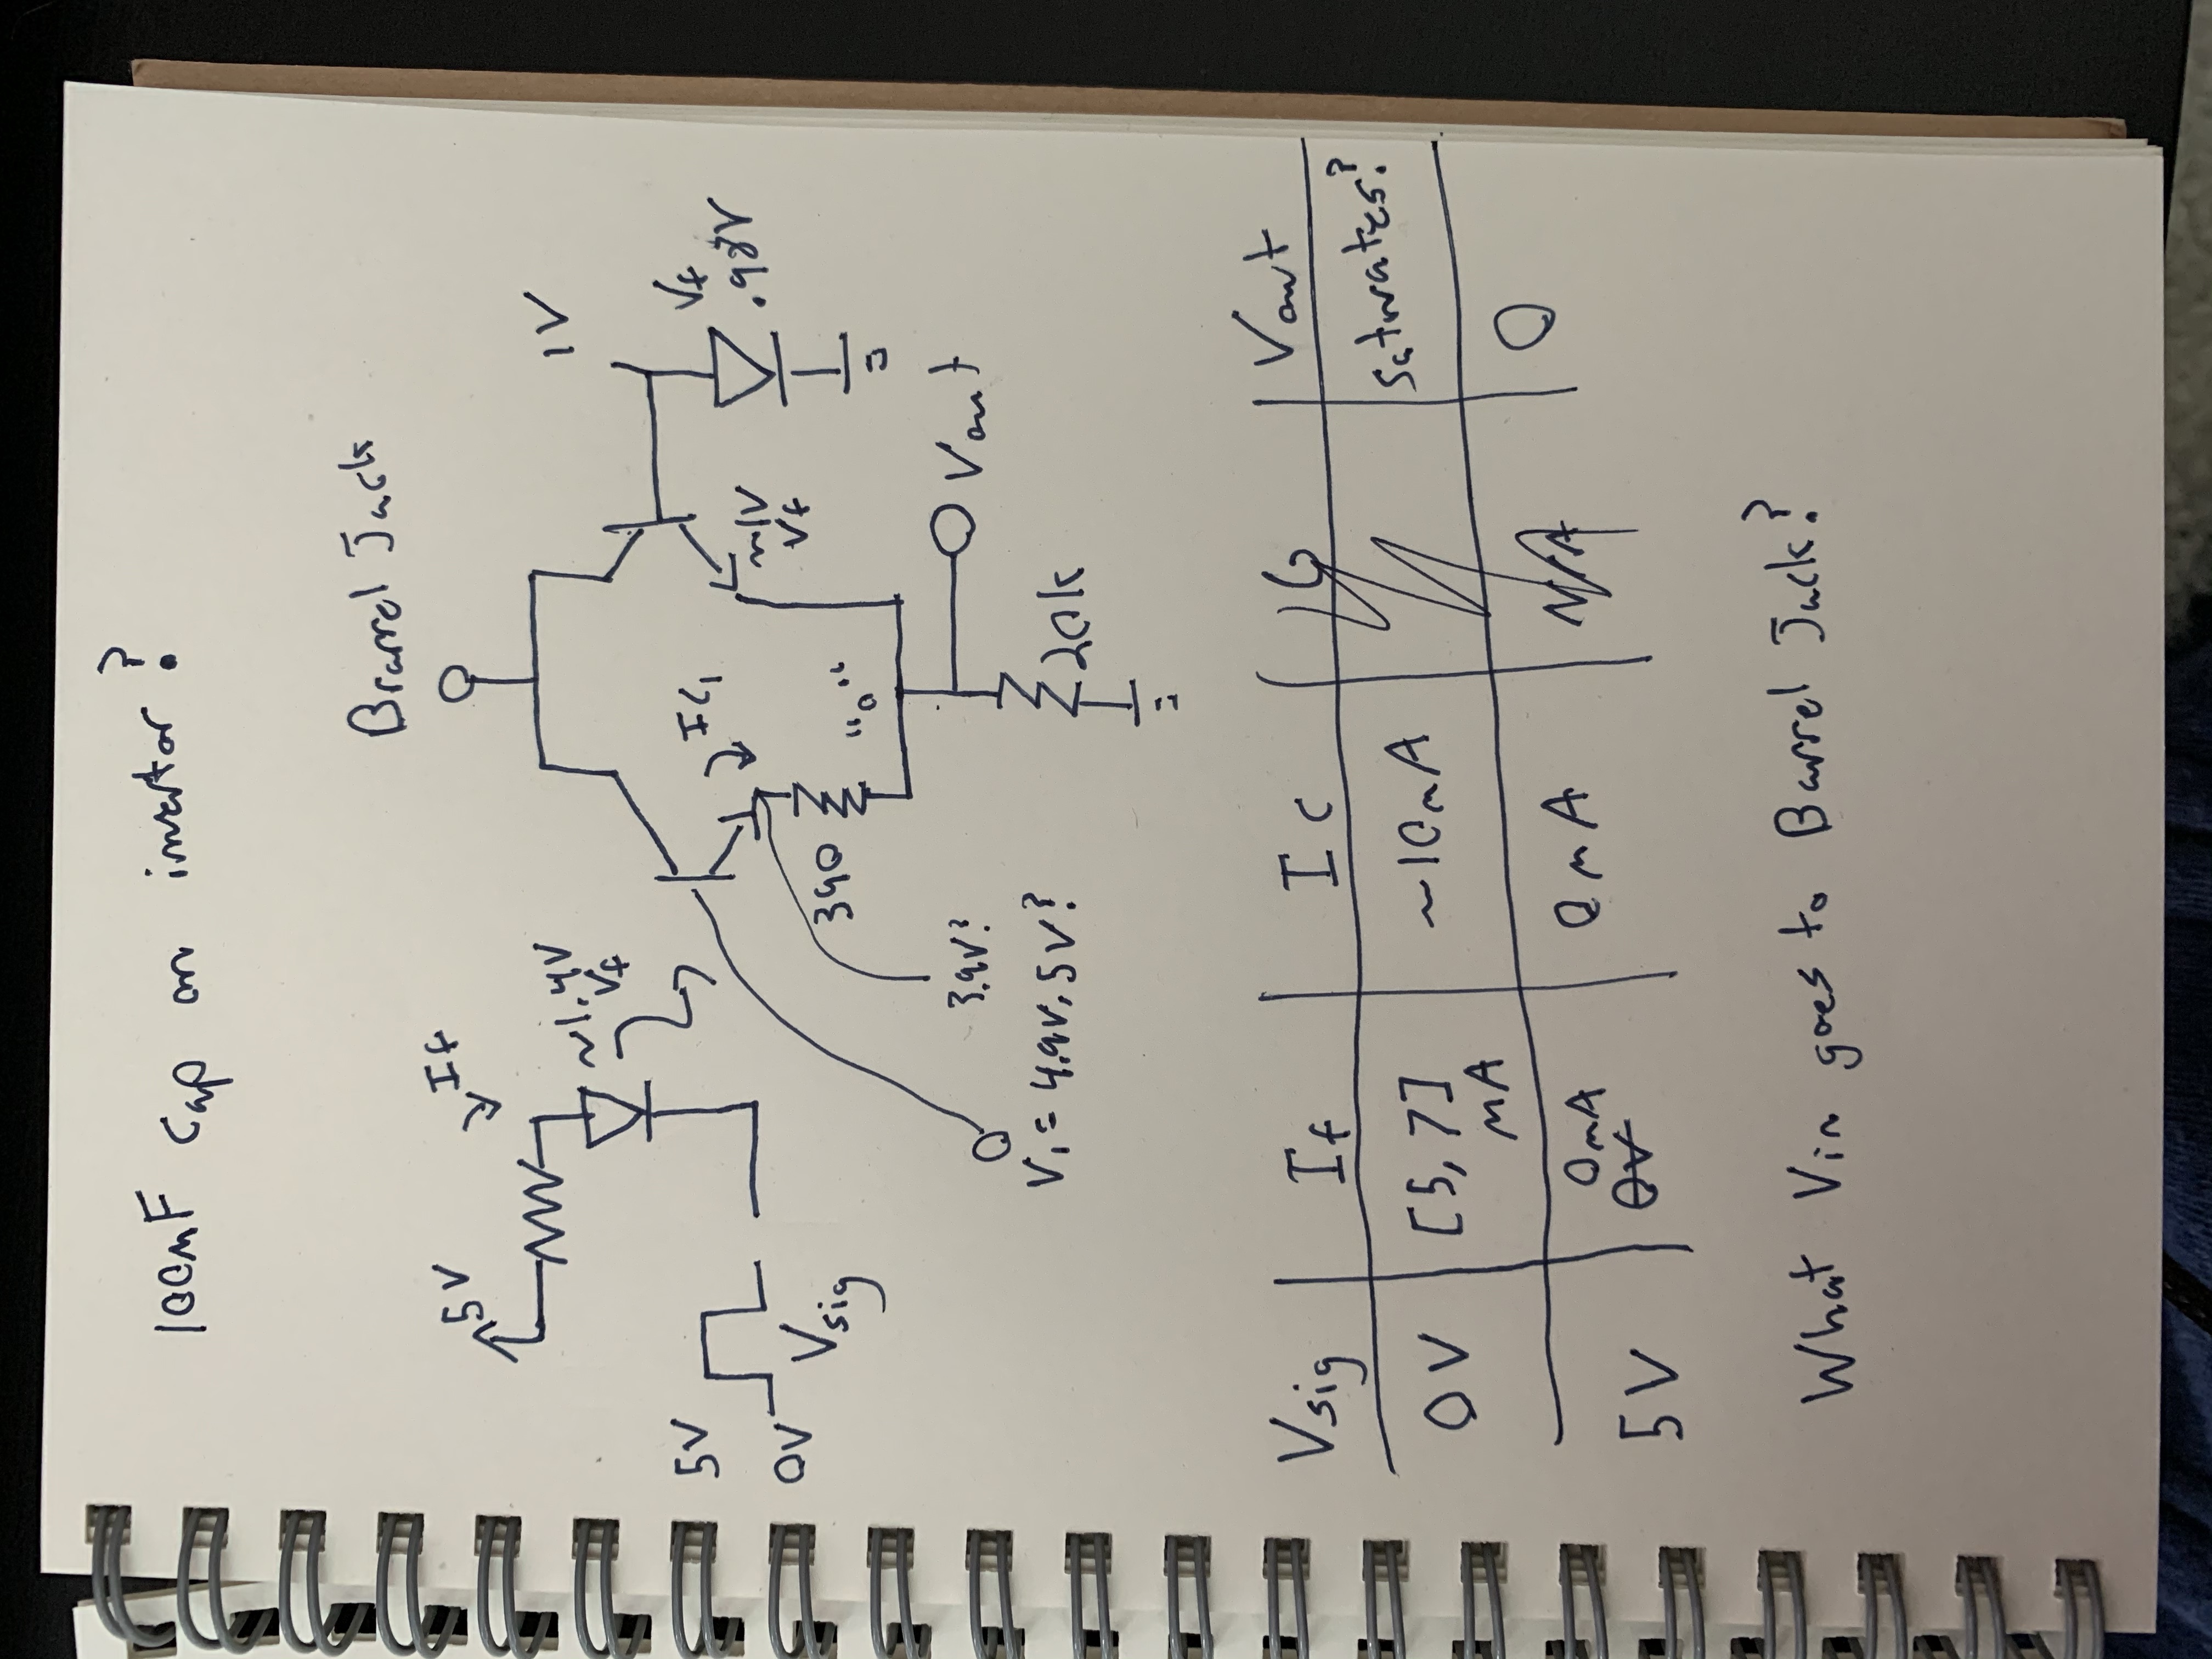 100nF Cap on invertor?
Brarrel Jack
5V
If
~1.4V
Vf
1V
5V
0V
Vsig
IC1
~1V
Vf
Vf
.98V
390
"0"
3.9V?
V1 = 4.9V, 5V?
Vout
20k
Vsig If Ic Vout
0V [5, 7] mA ~10mA Saturates?
5V 0mA 0V 0mA N/A 0
What Vin goes to Barrel Jack?